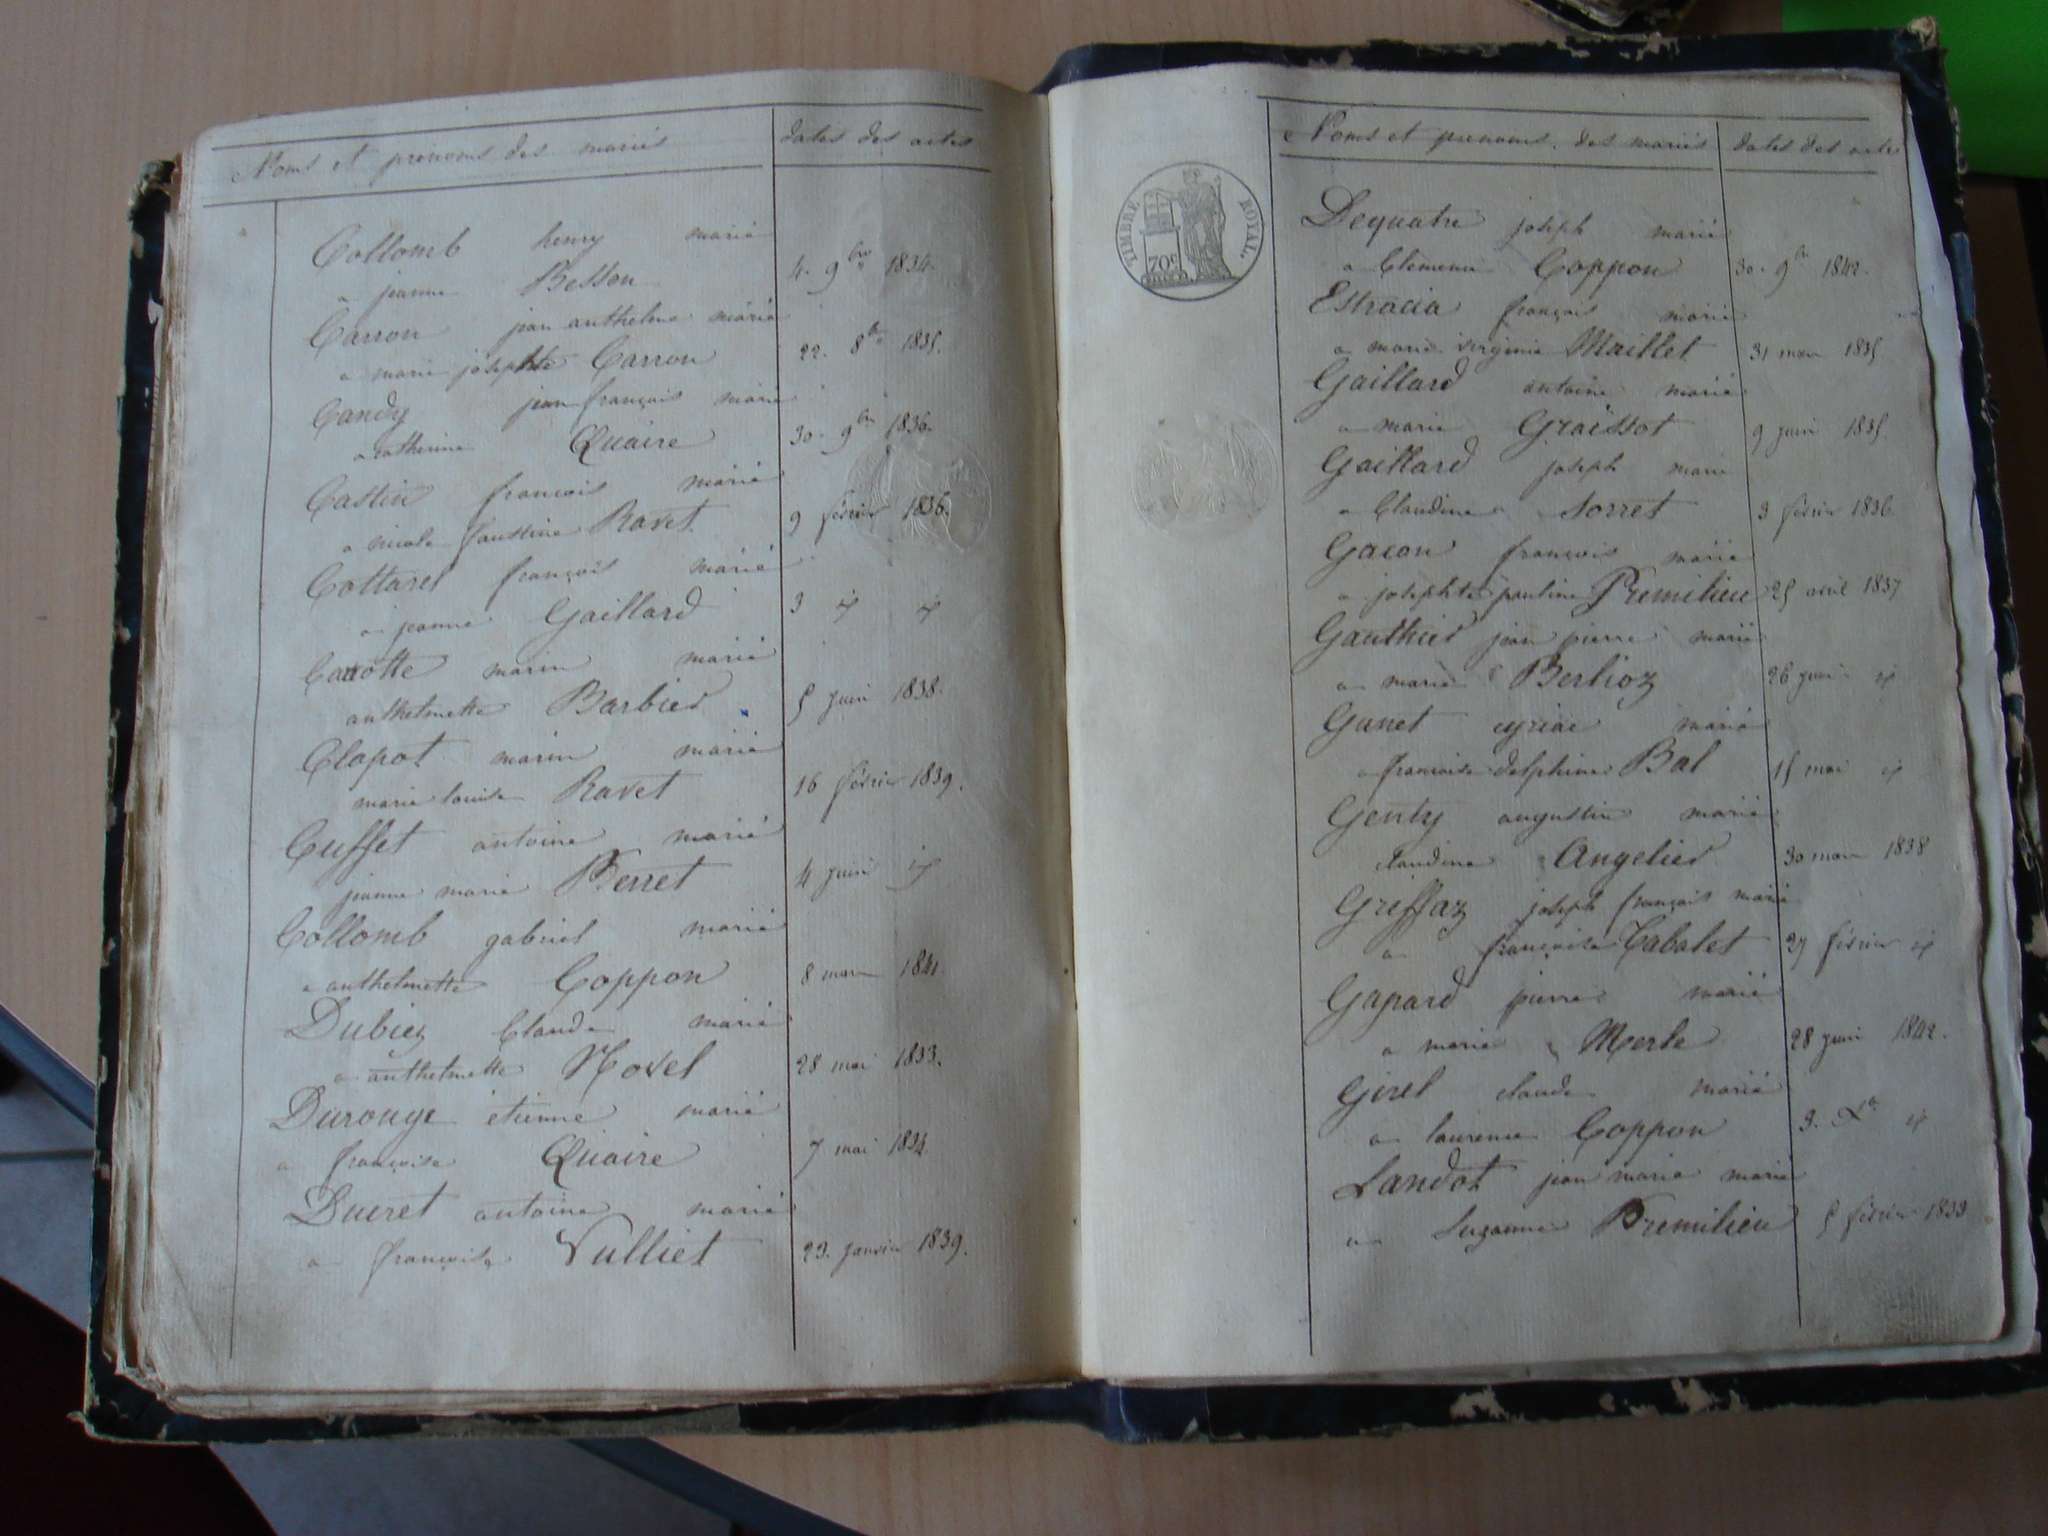 Noms et prénoms des mariés dates des actes
Collomb henry marié
a jeanne Besson 4. 9bre 1834.
Carron jean anthelme marié
a marie josephte Carron 22. 8bre 1835.
Candy jean françois marié
a catherine Quaire 30. 9bre 1836.
Castin françois marié
a nicole faustine Ravet 9 février 1836.
Cottarel françois marié
a jeanne Gaillard 3 id id
Carrotte marin marié
anthelmette Barbier 5 juin 1838.
Clapot marin marié
marie louise Ravet 16 février 1839.
Cuffet antoine marié
jeanne marie Berret 4 juin id
Collomb gabriel marié
a anthelmette Coppon 8 mars 1841.
Dubiez Claude marié
a anthelmette Novel 28 mai 1833.
Durouge étienne marié
a françoise Quaire 7 mai 1834.
Ducret antoine marié
a françoise Vulliet 23. janvier 1839.
Noms et prénoms des mariés dates des actes
TIMBRE ROYAL.
70c
Dequatre joseph marié
a Clemence Coppon 30. 9bre 1842.
Estracia françois marié
a marie virginie Maillet 31 mars 1835
Gaillard antoine marié
a marie Graissot 9 juin 1835
Gaillard joseph marié
a Claudine Sorret 3 février 1836
Gacon françois marié
a josephte pauline Premilieu 25 avril 1837
Gauthier jean pierre marié
a marie Berlioz 26 juin id
Gunet cyriac marié
a françoise delphine Bal 15 mai id
Genty augustin marié
claudine Angelier 30 mars 1838
Greffaz joseph françois marié
a françoise Cabalet 27 février id
Gapard pierre marié
a marie Merle 28 juin 1842.
Girel claude marié
a laurence Coppon 3. Xbre id
Landot jean marie marié
a Suzanne Premilieu 5 février 1833